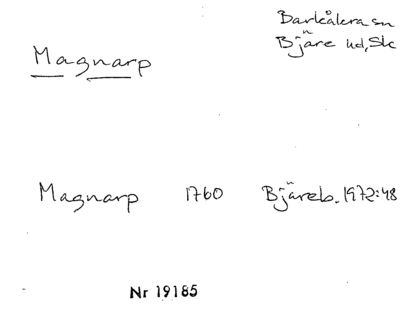 Magnarp
Barkåkra sn
Bjäre hd, Sk
Magnarp 1760 Bjäreb. 1972:48
Nr 19185